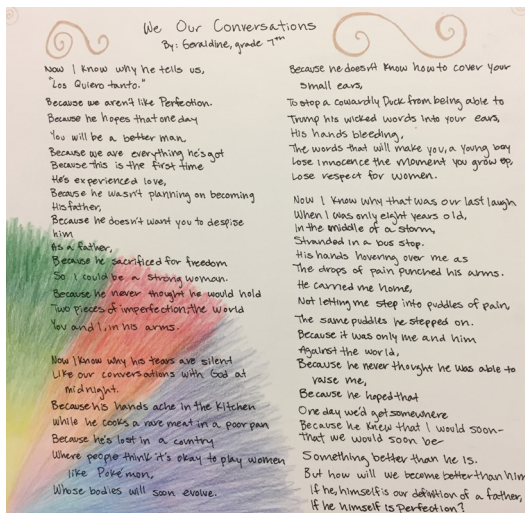 We Our Conversations
By: Geraldine, grade 7th
Now I know why he tells us,
"Los Quiero tanto."
Because we aren't like Perfection.
Because he hopes that one day
You will be a better man.
Because we are everything he's got
Because this is the first time
He's experienced love,
Because he wasn't planning on becoming
His father,
Because he doesn't want you to despise
him
As a father,
Because he sacrificed for freedom
So I could be a strong woman.
Because he never thought he would hold
Two pieces of imperfection; the world
You and I, in his arms.
Now I know why his tears are silent
Like our conversations with God at
midnight.
Because his hands ache in the kitchen
While he cooks a rare meat in a poor pan
Because he's lost in a country
Where people think it's okay to play women
like Poke'mon,
Whose bodies will soon evolve.
Because he doesn't know how to cover your
small ears,
To stop a cowardly Duck from being able to
Trump his wicked words into your ears,
His hands bleeding,
The words that will make you, a young boy
Lose innocence the moment you grow up,
Lose respect for women.
Now I know why that was our last laugh
When I was only eight years old,
In the middle of a storm,
Stranded in a bus stop.
His hands hovering over me as
The drops of pain punched his arms.
He carried me home,
Not letting me step into puddles of pain
The same puddles he stepped on.
Because it was only me and him
Against the world,
Because he never thought he was able to
raise me,
Because he hoped that
One day we'd get somewhere
Because he knew that I would soon-
that we would soon be-
Something better than he is.
But how will we become better than him
If he, himself is our definition of a father,
If he himself is Perfection?